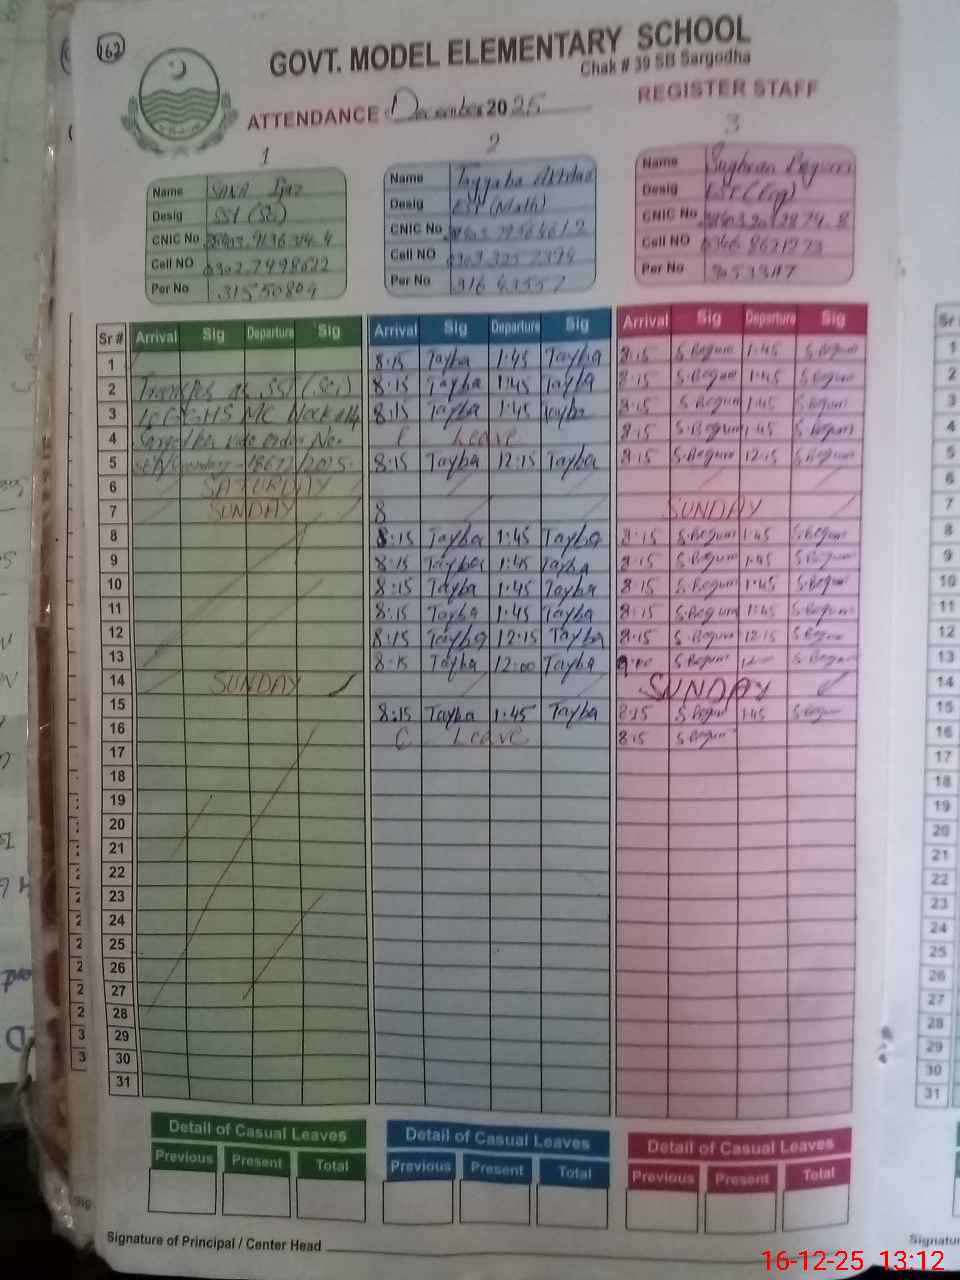 162
GOVT. MODEL ELEMENTARY SCHOOL
Chak # 39 SB Sargodha
ATTENDANCE December 2025 REGISTER STAFF
1 2 3
Name SANA Ijaz
Desig SST (Sci)
CNIC No
Cell NO 0302 7498622
Per No 31550809
Name Tayyaba
Desig EST (Math)
CNIC No
Cell NO
Per No
Name Sughran Begum
Desig EST (Eng)
CNIC No
Cell NO 0346 8621223
Per No
Sr # Arrival Sig Departure Sig Arrival Sig Departure Sig Arrival Sig Departure Sig
1 8:15 Tayba 1:45 Tayba 8:15 S.Begum 1:45 S.Begum
2 Transfer as SST (Sci) 8:15 Tayba 1:45 Tayba 8:15 S.Begum 1:45 S.Begum
3 GGHS MC 8:15 Tayba 1:45 Tayba 8:15 S.Begum 1:45 S.Begum
4 Sargodha vide order No. C Leave 8:15 S.Begum 1:45 S.Begum
5 8:15 Tayba 12:15 Tayba 8:15 S.Begum 12:15 S.Begum
6 SATURDAY
7 SUNDAY 8 SUNDAY
8 8:15 Tayba 1:45 Tayba 8:15 S.Begum 1:45 S.Begum
9 8:15 Tayba 1:45 Tayba 8:15 S.Begum 1:45 S.Begum
10 8:15 Tayba 1:45 Tayba 8:15 S.Begum 1:45 S.Begum
11 8:15 Tayba 1:45 Tayba 8:15 S.Begum 1:45 S.Begum
12 8:15 Tayba 12:15 Tayba 8:15 S.Begum 12:15 S.Begum
13 8:15 Tayba 12:00 Tayba S.Begum S.Begum
14 SUNDAY SUNDAY
15 8:15 Tayba 1:45 Tayba 8:15 S.Begum 1:45 S.Begum
16 C Leave 8:15 S.Begum
17
18
19
20
21
22
23
24
25
26
27
28
29
30
31
Detail of Casual Leaves Detail of Casual Leaves Detail of Casual Leaves
Previous Present Total Previous Present Total Previous Present Total
Signature of Principal / Center Head
16-12-25 13:12